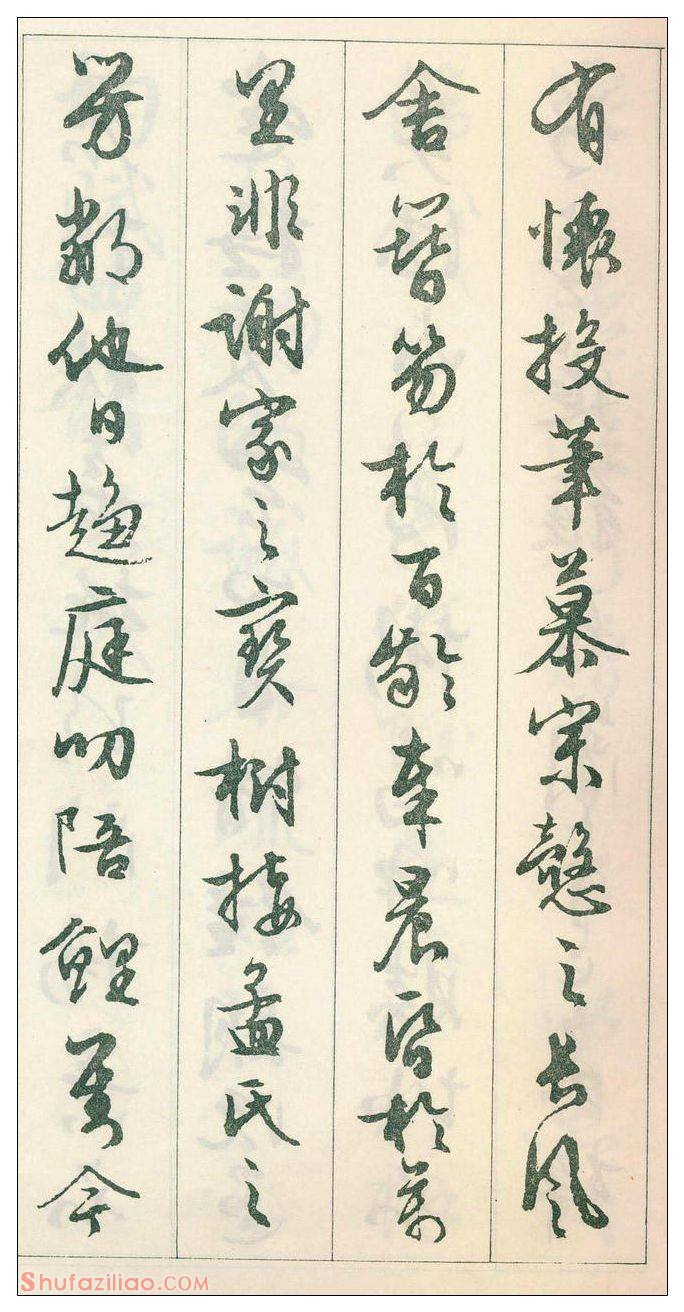 有懷投筆慕宗慤之長風
舍簪笏於百齡奉晨昏於萬
里非謝家之寶樹接孟氏之
芳鄰他日趨庭叨陪鯉對今
Shufaziliao.COM